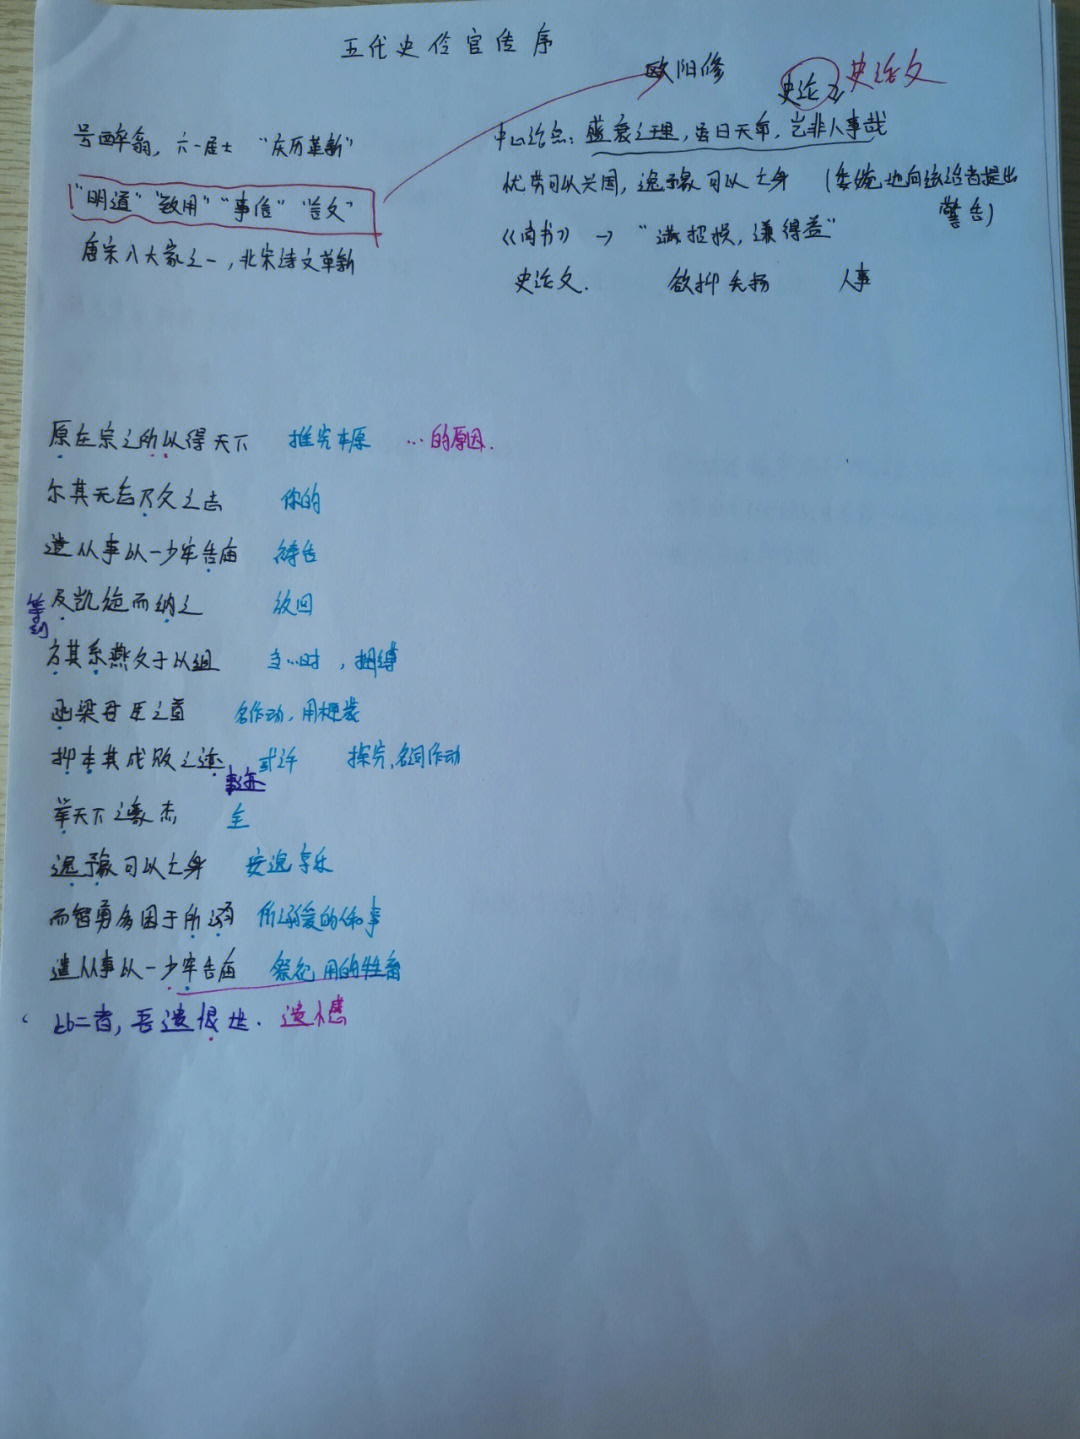 五代史伶官传序
欧阳修
史论文 史论文
号醉翁，六一居士 "庆历革新"
"明道" "致用" "事信" "言文"
唐宋八大家之一，北宋诗文革新
中心论点：盛衰之理，虽曰天命，岂非人事哉
忧劳可以兴国，逸豫可以亡身 (委婉地向统治者提出
警告)
《尚书》 → "满招损，谦得益"
史论文. 欲抑先扬 人事
原庄宗之所以得天下 推究本原 …的原因.
尔其无忘乃父之志 你的
遣从事以一少牢告庙 祷告
等到 及凯旋而纳之 放回
方其系燕父子以组 当…时，捆缚
函梁君臣之首 名作动，用木匣装
抑本其成败之迹 或许 探究，名词作动
事迹
举天下之豪杰 全
逸豫可以亡身 安逸享乐
而智勇多困于所溺 所溺爱的人和事
遣从事以一少牢告庙 祭祀用的牲畜
此二者，吾遗恨也. 遗憾